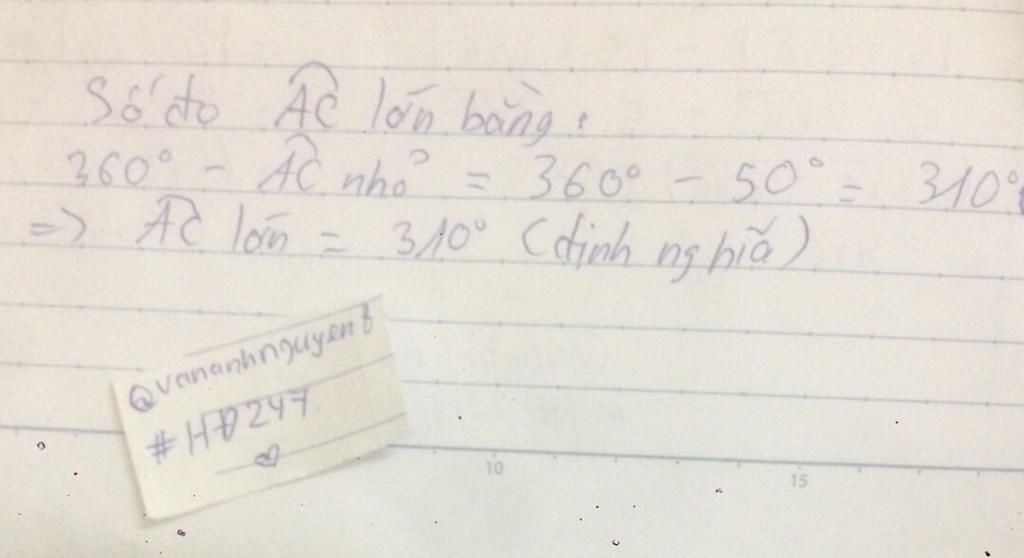 Số đo A͡C lớn bằng:
360° - A͡C nhỏ = 360° - 50° = 310°
=> A͡C lớn = 310° (định nghĩa)
Qvananhnguyen8
#HĐ247
10
15